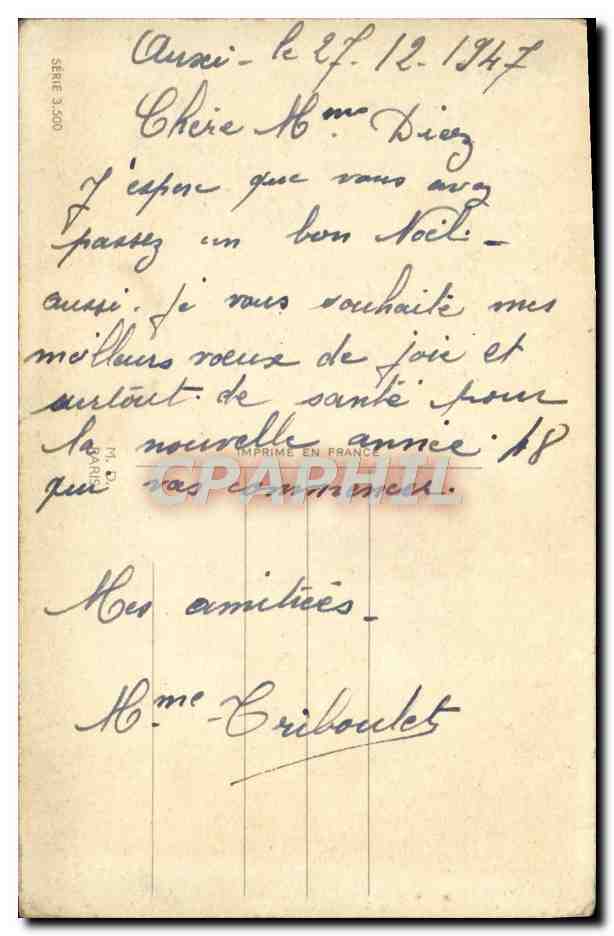 Auxi - le 27.12.1947
SÉRIE 3.500
Chère Mme Diez
J'espere que vous avez
passez un bon Noël -
aussi. je vous souhaite mes
meilleurs voeux de joie et
surtout. de santé pour
la nouvelle année. 48
M. D.
PARIS
IMPRIME EN FRANCE
qui vas commencer.
CPARHIL
Mes amitiées -
Mme Triboulet